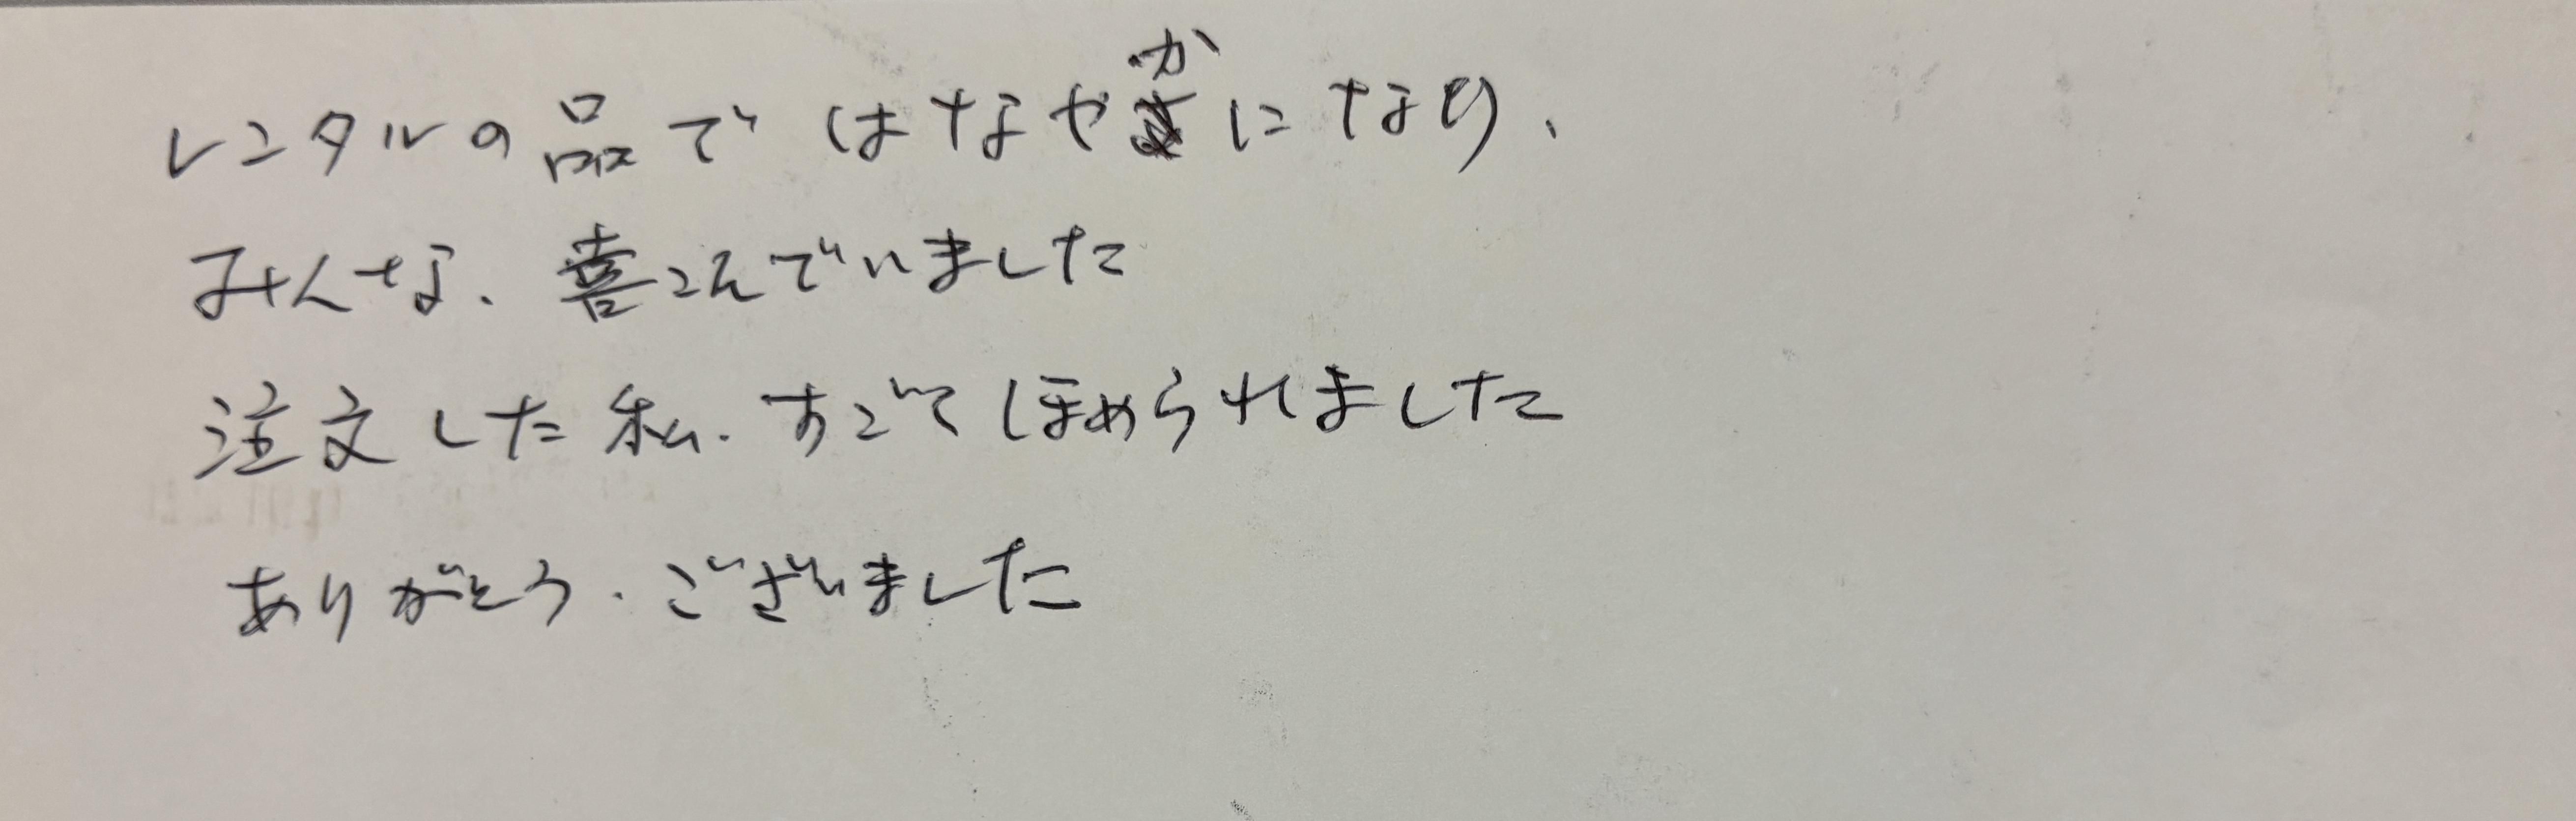 レンタルの品で はなやかになり、
みんな、喜こんでいました
注文した私、すごくほめられました
ありがとう、ございました